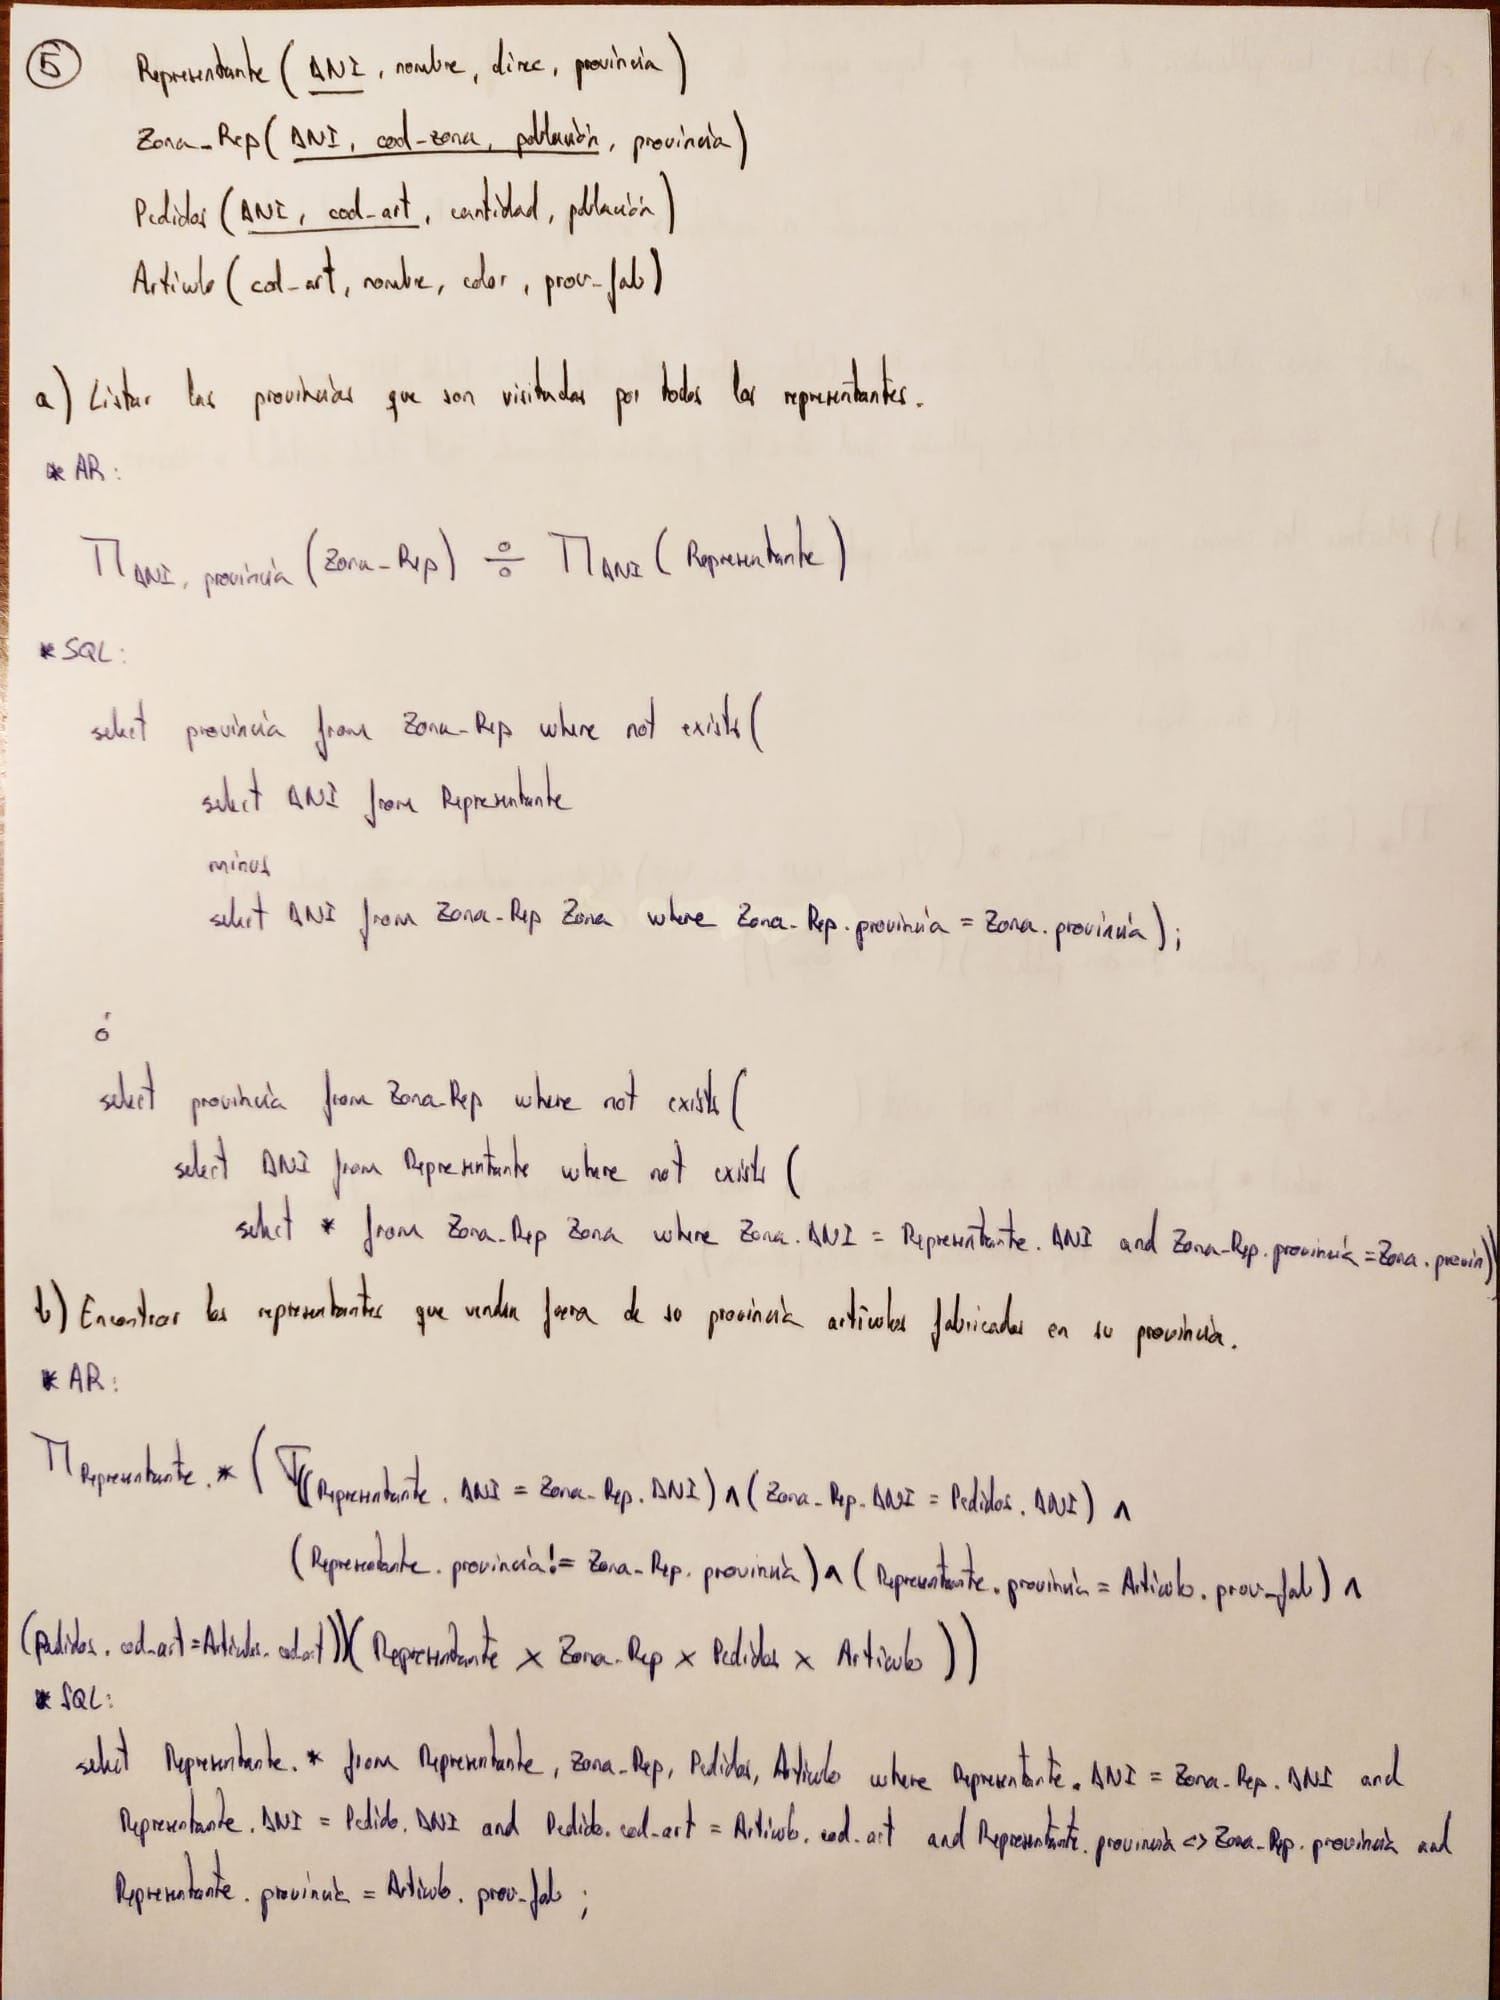 5 Representante ( DNI, nombre, direc, provincia )
Zona-Rep ( DNI, cod-zona, población, provincia )
Pedidos ( DNI, cod-art, cantidad, población )
Artículo ( cod-art, nombre, color, prov-fab )
a) Listar las provincias que son visitadas por todos los representantes.
* AR:
Π DNI, provincia ( Zona-Rep ) ÷ Π DNI ( Representante )
* SQL:
select provincia from Zona-Rep where not exists (
select DNI from Representante
minus
select DNI from Zona-Rep Zona where Zona-Rep.provincia = Zona.provincia );
ó
select provincia from Zona-Rep where not exists (
select DNI from Representante where not exists (
select * from Zona-Rep Zona where Zona.DNI = Representante.DNI and Zona-Rep.provincia = Zona.provin))
b) Encontrar los representantes que venden fuera de su provincia artículos fabricados en su provincia.
* AR:
Π Representante.* ( σ((Representante.DNI = Zona-Rep.DNI) ∧ (Zona-Rep.DNI = Pedidos.DNI) ∧
(Representante.provincia != Zona-Rep.provincia) ∧ (Representante.provincia = Artículo.prov-fab) ∧
(pedidos.cod-art = Artículos.cod-art))(Representante × Zona-Rep × Pedidos × Artículo))
* SQL:
select Representante.* from Representante, Zona-Rep, Pedidos, Artículo where Representante.DNI = Zona-Rep.DNI and
Representante.DNI = Pedido.DNI and Pedido.cod-art = Artículo.cod-art and Representante.provincia <> Zona-Rep.provincia and
Representante.provincia = Artículo.prov-fab ;